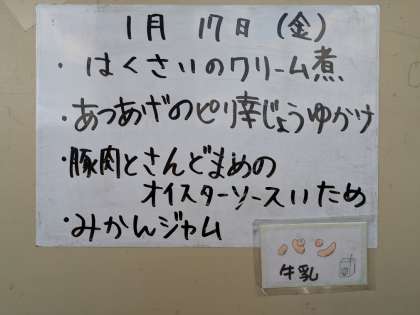 1月 17日 (金)
・はくさいのクリーム煮
・あつあげのピリ辛じょうゆかけ
・豚肉とさんどまめの
オイスターソースいため
・みかんジャム
パン
牛乳